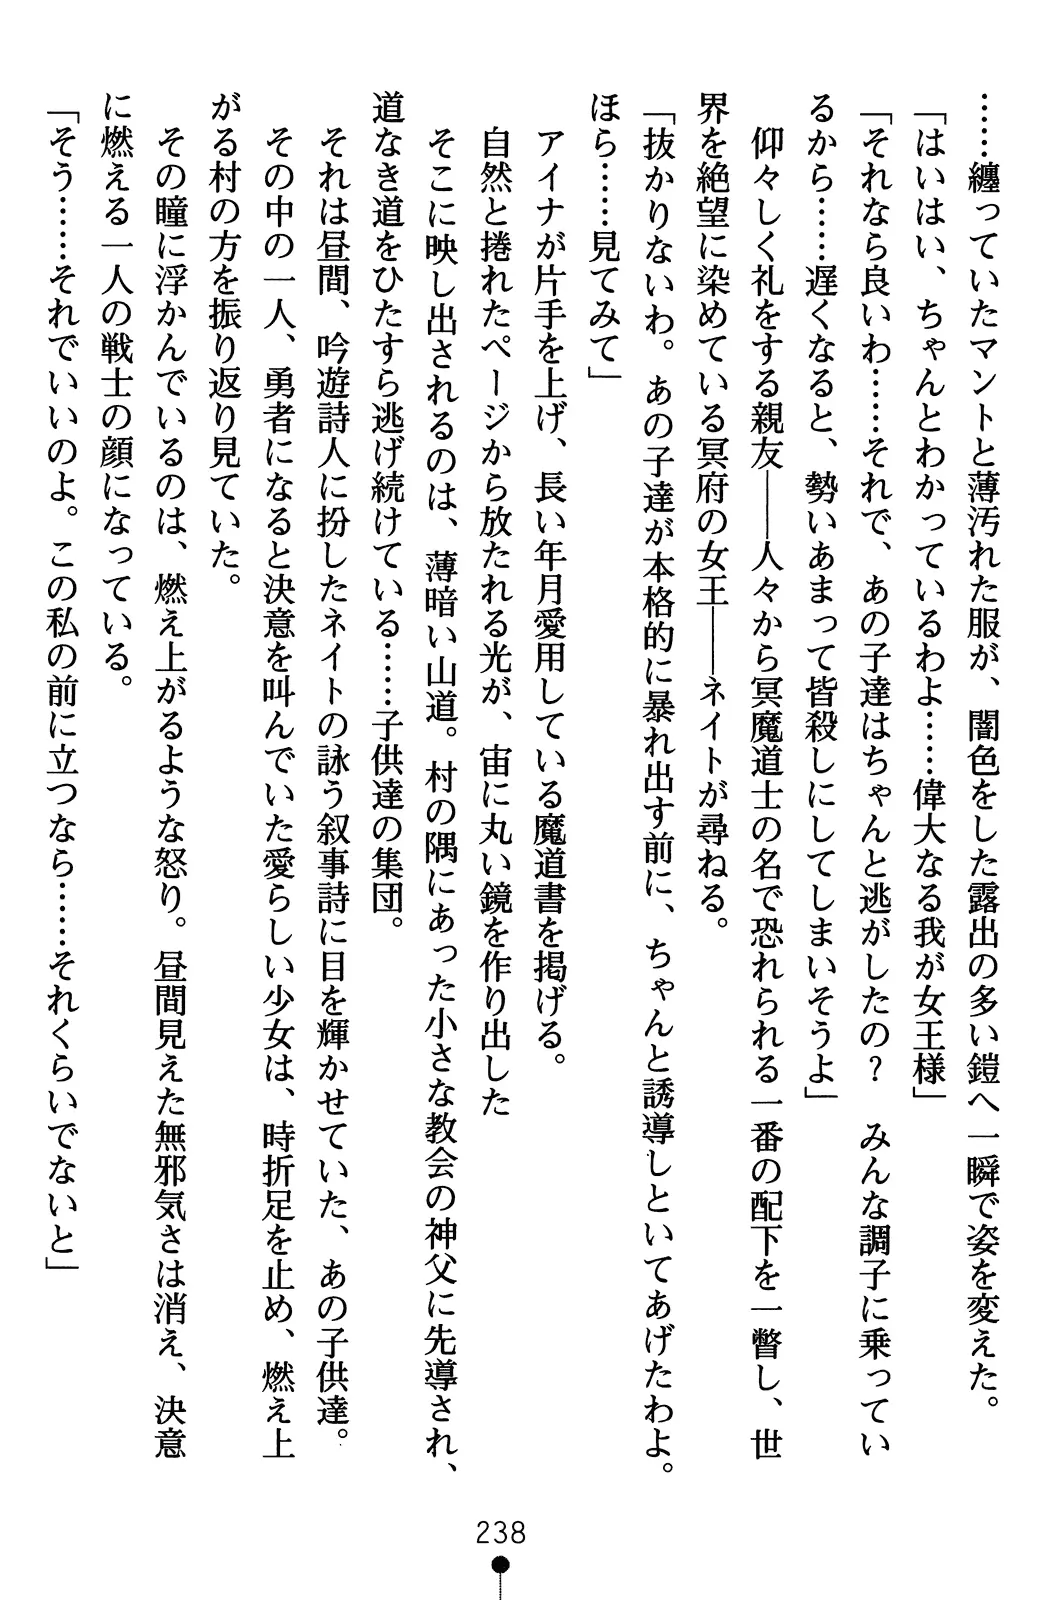 ……纏っていたマントと薄汚れた服が、闇色をした露出の多い鎧へ一瞬で姿を変えた。
「はいはい、ちゃんとわかっているわよ……偉大なる我が女王様」
「それなら良いわ……それで、あの子達はちゃんと逃がしたの？　みんな調子に乗ってい
るから……遅くなると、勢いあまって皆殺しにしてしまいそうよ」
　仰々しく礼をする親友――人々から冥魔道士の名で恐れられる一番の配下を一瞥し、世
界を絶望に染めている冥府の女王――ネイトが尋ねる。
「抜かりないわ。あの子達が本格的に暴れ出す前に、ちゃんと誘導しといてあげたわよ。
ほら……見てみて」
　アイナが片手を上げ、長い年月愛用している魔道書を掲げる。
　自然と捲れたページから放たれる光が、宙に丸い鏡を作り出した
　そこに映し出されるのは、薄暗い山道。村の隅にあった小さな教会の神父に先導され、
道なき道をひたすら逃げ続けている……子供達の集団。
　それは昼間、吟遊詩人に扮したネイトの詠う叙事詩に目を輝かせていた、あの子供達。
　その中の一人、勇者になると決意を叫んでいた愛らしい少女は、時折足を止め、燃え上
がる村の方を振り返り見ていた。
　その瞳に浮かんでいるのは、燃え上がるような怒り。昼間見えた無邪気さは消え、決意
に燃える一人の戦士の顔になっている。
「そう……それでいいのよ。この私の前に立つなら……それくらいでないと」
238